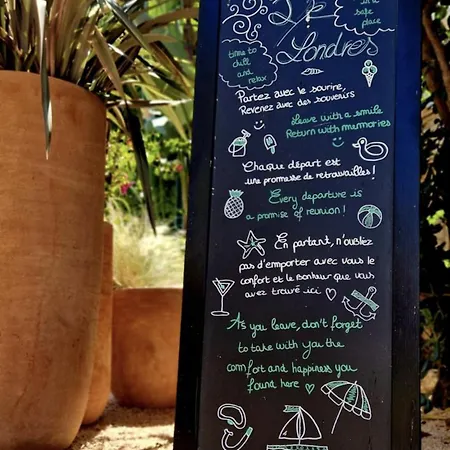 Le
Londres
in a
safe
place
time to
chill
and
relax
Partez avec le sourire,
Revenez avec des souvenirs
Leave with a smile
Return with memories
Chaque départ est
une promesse de retrouvailles !
Every departure is
a promise of reunion !
En partant, n'oublez
pas d'emporter avec vous le
confort et le Bonheur que vous
avez trouvé ici
As you leave, don't forget
to take with you the
comfort and happiness you
found here